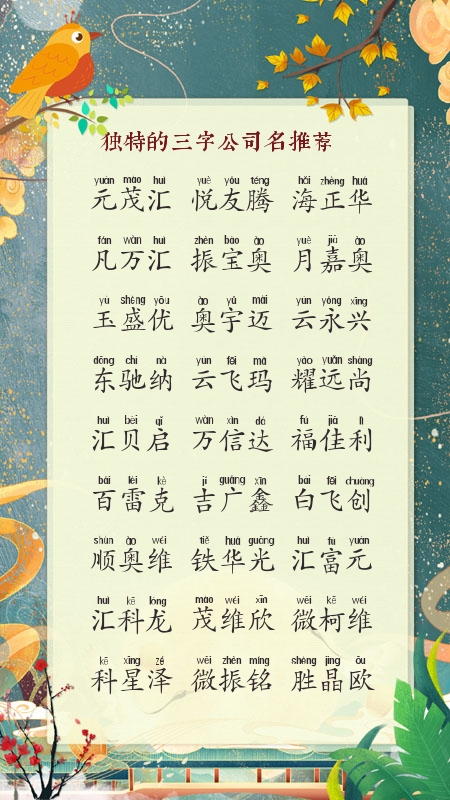 独特的三字公司名推荐
yuán mào huì yuè yǒu téng hǎi zhèng huá
元茂汇 悦友腾 海正华
fán wàn huì zhèn bǎo ào yuè jiā ào
凡万汇 振宝奥 月嘉奥
yù shèng yōu ào yǔ mài yún yǒng xīng
玉盛优 奥宇迈 云永兴
dōng chí nà yún fēi mǎ yào yuǎn shàng
东驰纳 云飞玛 耀远尚
huì bèi qǐ wàn xìn dá fú jiā lì
汇贝启 万信达 福佳利
bǎi léi kè jí guǎng xīn bái fēi chuàng
百雷克 吉广鑫 白飞创
shùn ào wéi tiě huá guāng huì fù yuán
顺奥维 铁华光 汇富元
huì kē lóng mào wéi xīn wēi kē wéi
汇科龙 茂维欣 微柯维
kē xīng zé wēi zhèn míng shèng jīng ōu
科星泽 微振铭 胜晶欧